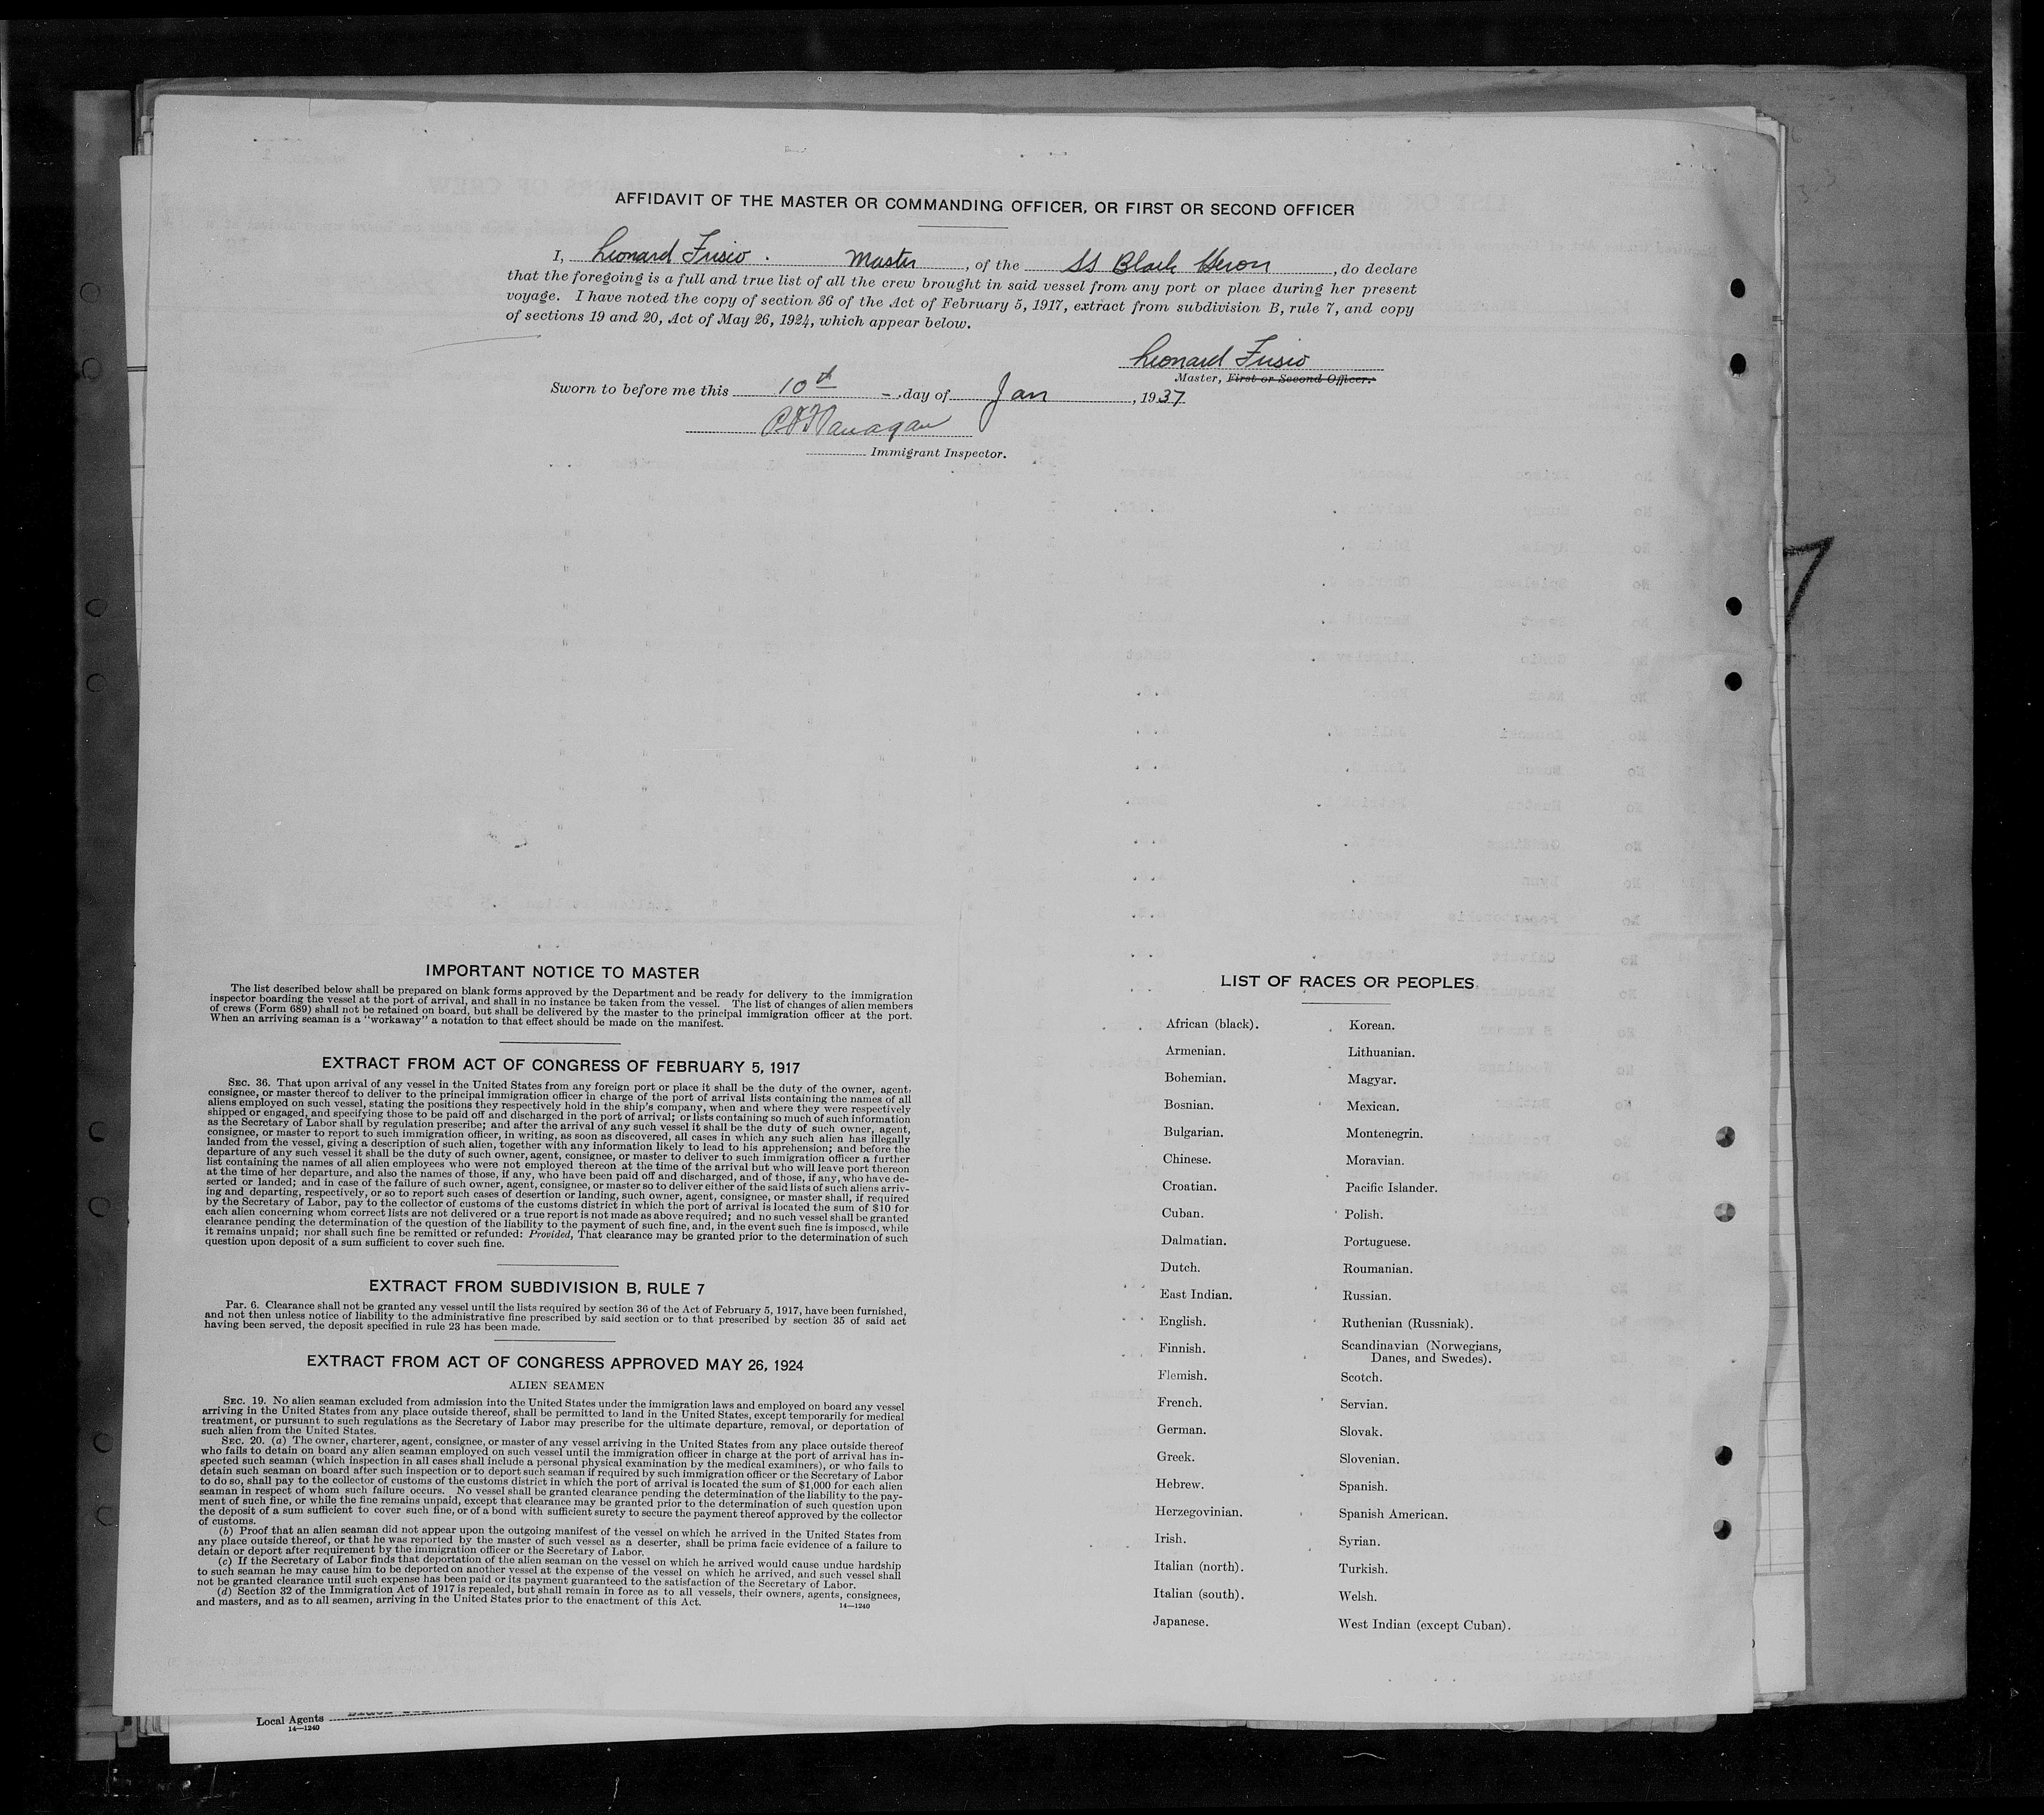 AFFIDAVIT OF THE MASTER OR COMMANDING OFFICER, OR FIRST OR SECOND OFFICER
I, Leonard Frisco. Master, of the SS Black Heron, do declare
that the foregoing is a full and true list of all the crew brought in said vessel from any port or place during her present
voyage. I have noted the copy of section 36 of the Act of February 5, 1917, extract from subdivision B, rule 7, and copy
of sections 19 and 20, Act of May 26, 1924, which appear below.
Leonard Frisco
Master, First or Second Officer.
Sworn to before me this 10th day of Jan, 1937
Immigrant Inspector.
IMPORTANT NOTICE TO MASTER
The list described below shall be prepared on blank forms approved by the Department and be ready for delivery to the immigration
inspector boarding the vessel at the port of arrival, and shall in no instance be taken from the vessel. The list of changes of alien members
of crews (Form 689) shall not be retained on board, but shall be delivered by the master to the principal immigration officer at the port.
When an arriving seaman is a "workaway" a notation to that effect should be made on the manifest.
EXTRACT FROM ACT OF CONGRESS OF FEBRUARY 5, 1917
SEC. 36. That upon arrival of any vessel in the United States from any foreign port or place it shall be the duty of the owner, agent,
consignee, or master thereof to deliver to the principal immigration officer in charge of the port of arrival lists containing the names of all
aliens employed on such vessel, stating the positions they respectively hold in the ship's company, when and where they were respectively
shipped or engaged, and specifying those to be paid off and discharged in the port of arrival; or lists containing so much of such information
as the Secretary of Labor shall by regulation prescribe; and after the arrival of any such vessel it shall be the duty of such owner, agent,
consignee, or master to report to such immigration officer, in writing, as soon as discovered, all cases in which any such alien has illegally
landed from the vessel, giving a description of such alien, together with any information likely to lead to his apprehension; and before the
departure of any such vessel it shall be the duty of such owner, agent, consignee, or master to deliver to such immigration officer a further
list containing the names of all alien employees who were not employed thereon at the time of the arrival but who will leave port thereon
at the time of her departure, and also the names of those, if any, who have been paid off and discharged, and of those, if any, who have de-
serted or landed; and in case of the failure of such owner, agent, consignee, or master so to deliver either of the said lists of such aliens arriv-
ing and departing, respectively, or so to report such cases of desertion or landing, such owner, agent, consignee, or master shall, if required
by the Secretary of Labor, pay to the collector of customs of the customs district in which the port of arrival is located the sum of $10 for
each alien concerning whom correct lists are not delivered or a true report is not made as above required; and no such vessel shall be granted
clearance pending the determination of the question of the liability to the payment of such fine, and, in the event such fine is imposed, while
it remains unpaid; nor shall such fine be remitted or refunded: Provided, That clearance may be granted prior to the determination of such
question upon deposit of a sum sufficient to cover such fine.
EXTRACT FROM SUBDIVISION B, RULE 7
Par. 6. Clearance shall not be granted any vessel until the lists required by section 36 of the Act of February 5, 1917, have been furnished,
and not then unless notice of liability to the administrative fine prescribed by said section or to that prescribed by section 35 of said act
having been served, the deposit specified in rule 23 has been made.
EXTRACT FROM ACT OF CONGRESS APPROVED MAY 26, 1924
ALIEN SEAMEN
SEC. 19. No alien seaman excluded from admission into the United States under the immigration laws and employed on board any vessel
arriving in the United States from any place outside thereof, shall be permitted to land in the United States, except temporarily for medical
treatment, or pursuant to such regulations as the Secretary of Labor may prescribe for the ultimate departure, removal, or deportation of
such alien from the United States.
SEC. 20. (a) The owner, charterer, agent, consignee, or master of any vessel arriving in the United States from any place outside thereof
who fails to detain on board any alien seaman employed on such vessel until the immigration officer in charge at the port of arrival has in-
spected such seaman (which inspection in all cases shall include a personal physical examination by the medical examiners), or who fails to
detain such seaman on board after such inspection or to deport such seaman if required by such immigration officer or the Secretary of Labor
to do so, shall pay to the collector of customs of the customs district in which the port of arrival is located the sum of $1,000 for each alien
seaman in respect of whom such failure occurs. No vessel shall be granted clearance pending the determination of the liability to the pay-
ment of such fine, or while the fine remains unpaid, except that clearance may be granted prior to the determination of such question upon
the deposit of a sum sufficient to cover such fine, or of a bond with sufficient surety to secure the payment thereof approved by the collector
of customs.
(b) Proof that an alien seaman did not appear upon the outgoing manifest of the vessel on which he arrived in the United States from
any place outside thereof, or that he was reported by the master of such vessel as a deserter, shall be prima facie evidence of a failure to
detain or deport after requirement by the immigration officer or the Secretary of Labor.
(c) If the Secretary of Labor finds that deportation of the alien seaman on the vessel on which he arrived would cause undue hardship
to such seaman he may cause him to be deported on another vessel at the expense of the vessel on which he arrived, and such vessel shall
not be granted clearance until such expense has been paid or its payment guaranteed to the satisfaction of the Secretary of Labor.
(d) Section 32 of the Immigration Act of 1917 is repealed, but shall remain in force as to all vessels, their owners, agents, consignees,
and masters, and as to all seamen, arriving in the United States prior to the enactment of this Act.
14—1240
LIST OF RACES OR PEOPLES
African (black).
Armenian.
Bohemian.
Bosnian.
Bulgarian.
Chinese.
Croatian.
Cuban.
Dalmatian.
Dutch.
East Indian.
English.
Finnish.
Flemish.
French.
German.
Greek.
Hebrew.
Herzegovinian.
Irish.
Italian (north).
Italian (south).
Japanese.
Korean.
Lithuanian.
Magyar.
Mexican.
Montenegrin.
Moravian.
Pacific Islander.
Polish.
Portuguese.
Roumanian.
Russian.
Ruthenian (Russniak).
Scandinavian (Norwegians,
Danes, and Swedes).
Scotch.
Servian.
Slovak.
Slovenian.
Spanish.
Spanish American.
Syrian.
Turkish.
Welsh.
West Indian (except Cuban).
Local Agents
14—1240